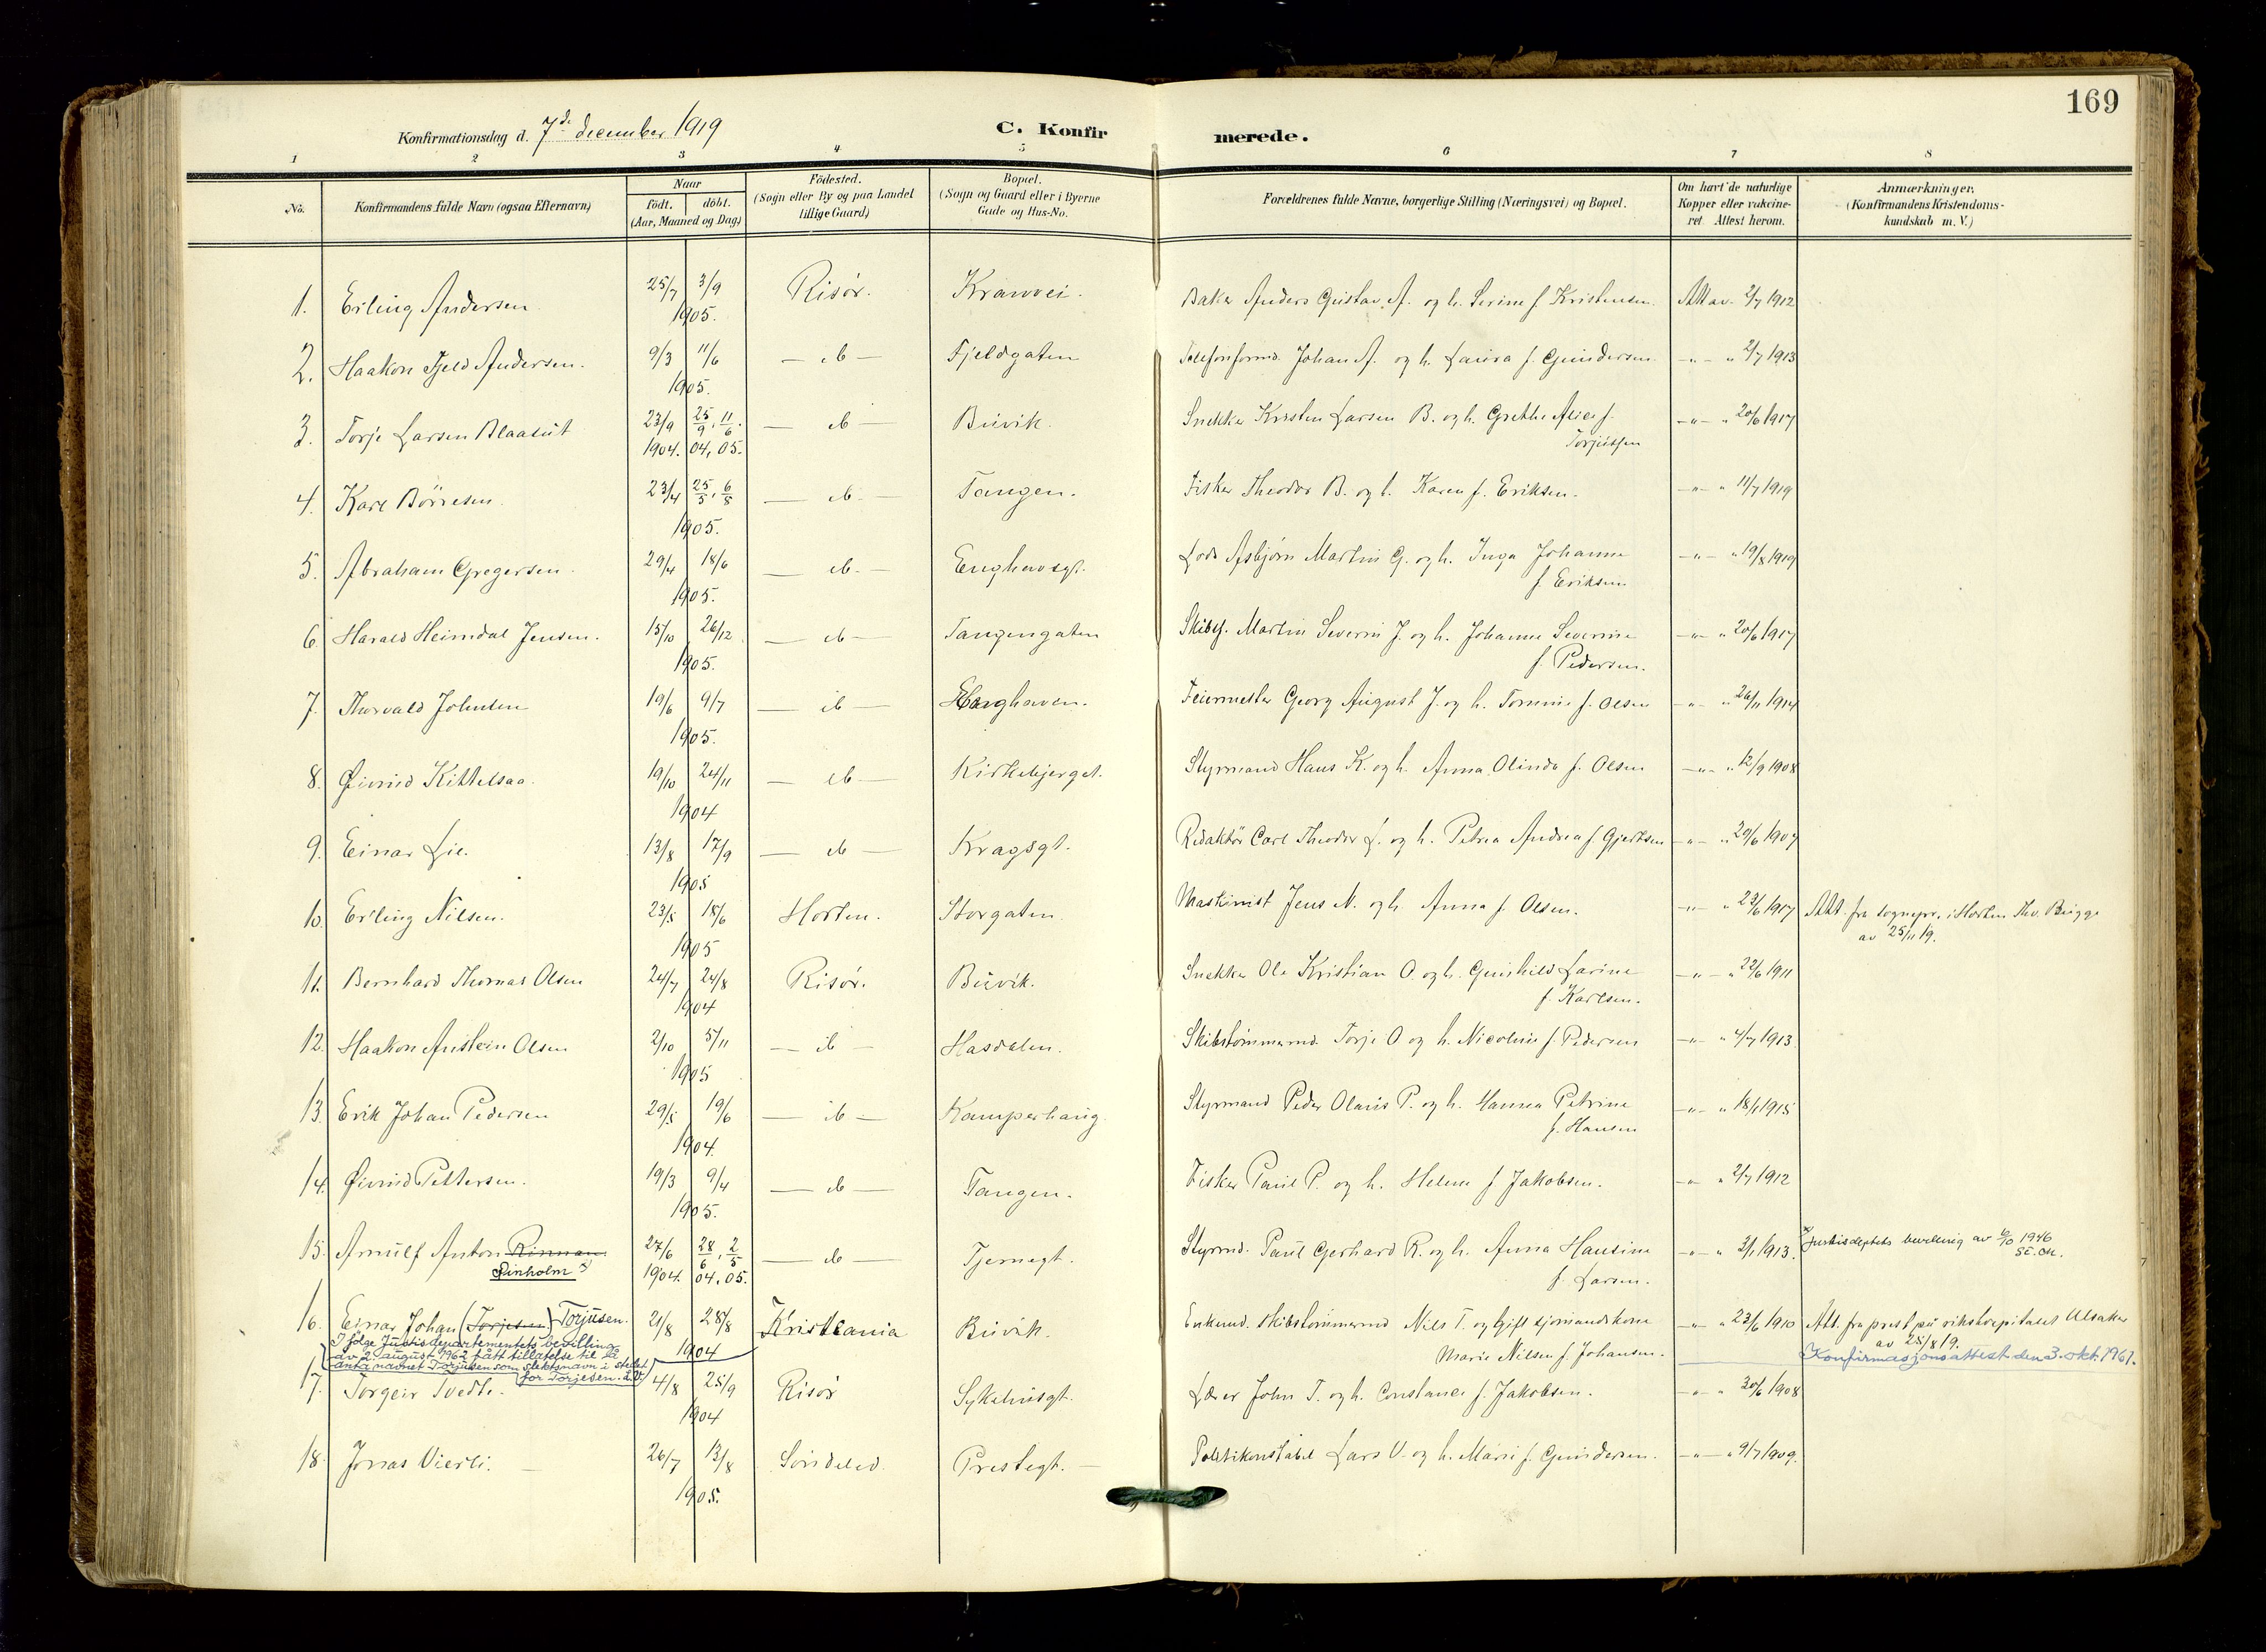 169
Konfirmationsdag d. 7de december 1919
C. Konfir merede.
1 2 3 4 5 6 7 8
No.
Konfirmandens fulde Navn (ogsaa Efternavn)
Naar
födt. döbt.
(Aar, Maaned og Dag)
Födested.
(Sogn eller By og paa Landet
tillige Gaard)
Bopæl.
(Sogn og Gaard eller i Byerne
Gade og Hus-No.
Forældrenes fulde Navne, borgerlige Stilling (Næringsvei) og Bopæl.
Om havt de naturlige
Kopper eller vakcine-
ret. Attest herom.
Anmærkninger.
(Konfirmandens Kristendoms-
kundskab m. V.)
1. Erling Andersen. 25/7 3/9 Risör. Kranvei. Baker Anders Gustav A. og h. Serine f. Kristensen. Att av 2/7 1912
1905.
2. Haakon Fjeld Andersen. 9/3 11/6 — ib — Fjeldgaten Telefonformd. Johan A. og h. Laura f. Gundersen. —„— „ 2/7 1913
1905.
3. Torje Larsen Blaasut 23/9 25/9, 11/6. — ib — Buvik. Snekker Kristen Larsen B. og h. Grethe Alice f. —„— „ 20/6 1917
1904. 04, 05. Torjussen
4. Karl Börresen. 23/4 25/5, 6/8 — ib — Tangen. Fisker Theodor B. og h. Karen f. Eriksen. —„— „ 11/7 1919
1905.
5. Abraham Gregersen. 29/4 18/6 — ib. — Enghavsgt. Lods Asbjørn Martin G. og h. Inga Johanne —„— „ 19/8 1919
1905. f. Eriksen
6. Harald Heimdal Jensen. 15/10 26/12 — ib — Tangengaten Skibsf. Martin Severin J. og h. Johanne Severine —„— „ 20/6 1917
1905. f. Pedersen.
7. Thorvald Johnsen 19/6 9/7 — ib — Enghaven. Feiermester Georg August J. og h. Tomine f. Olsen —„— „ 26/11 1914
1905.
8. Øivind Kittelsaa. 19/10 24/11 — ib — Kirkebjerget. Styrmand Hans K. og h. Anna Olinda f. Olsen —„— „ 12/9 1908
1904
9. Einar Lie. 13/8 17/9 — ib — Kragsgt. Redaktör Carl Theodor L. og h. Petrea Andrea f. Gjertsen —„— „ 29/6 1907
1905
10. Erling Nilsen. 23/5 18/6 Horten. Storgaten. Maskinist Jens N. og h. Anna f. Olsen. —„— „ 23/6 1917 Att. fra sognepr. i Horten Thv. Brügge
1905 av 25/11 19.
11. Bernhard Thomas Olsen 24/7 24/8 Risör. Buvik. Snekker Ole Kristian O. og h. Gunhild Larine —„— „ 22/6 1911
1904 f. Karlsen.
12. Haakon Anstein Olsen 2/10 5/11 — ib — Hasdalen. Skibstömmermd. Torje O. og h. Nicoline f. Pedersen —„— „ 4/7 1913.
1905
13. Erik Johan Pedersen 29/5 19/6 — ib — Kamperhaug. Styrmand Peder Olaus P. og h. Hanna Petrine —„— „ 18/1 1915
1904. f. Hansen
14. Øivind Pettersen. 19/3 9/4 — ib — Tangen. Fisker Paul P. og h. Helene f. Jakobsen. —„ „ 2/7 1912
1905.
15. Arnulf Anton Rinman. 27/6 28/6, 2/5 — ib — Tjernegt. Styrmd. Paul Gerhard R. og h. Anna Hansine —„— „ 3/1 1913. Justisdeptets bevilling av 6/10 1946
Rinholm x) 1904. 04, 05. f. Larsen.
16. Einar Johan (Torjesen) Torjusen. 21/8 28/8 Kristiania Buvik. Enkemd. skibstömmermd Nils T. og Gift sjömandskone —„— „ 23/6 1910 Att. fra prest på rikshospitalet Ulsaker
1904 Marie Nilsen f. Johansen. av 25/8 19.
I følge Justisdepartementets bevilling
av 2. august 1962 fått tillatelse til å
anta navnet Torjusen som slektsnavn i stedet
for Torjesen.
Konfirmasjonsattest den 3. okt. 1961.
17. Torgeir Tvedt. 4/8 25/9 Risör Sykehusgt. Lærer John T. og h. Constance f. Jakobsen. —„— „ 30/6 1908
1904
18. Jonas Vierli. 26/7 13/8 Söndeled. Prestegt. — Politikonstabel Lars V. og h. Marie f. Gundersen. —„— „ 9/7 1909.
1905.